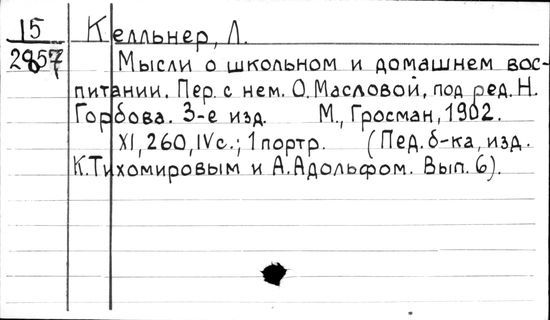 15 Келльнер, Л.
2857 Мысли о школьном и домашнем вос-
питании. Пер. с нем. О. Масловой, под ред. Н.
Горбова. 3-е изд. М., Гросман, 1902.
XI, 260, IV с.; 1 портр. (Пед. б-ка, изд.
К. Тихомировым и А. Адольфом. Вып. 6).